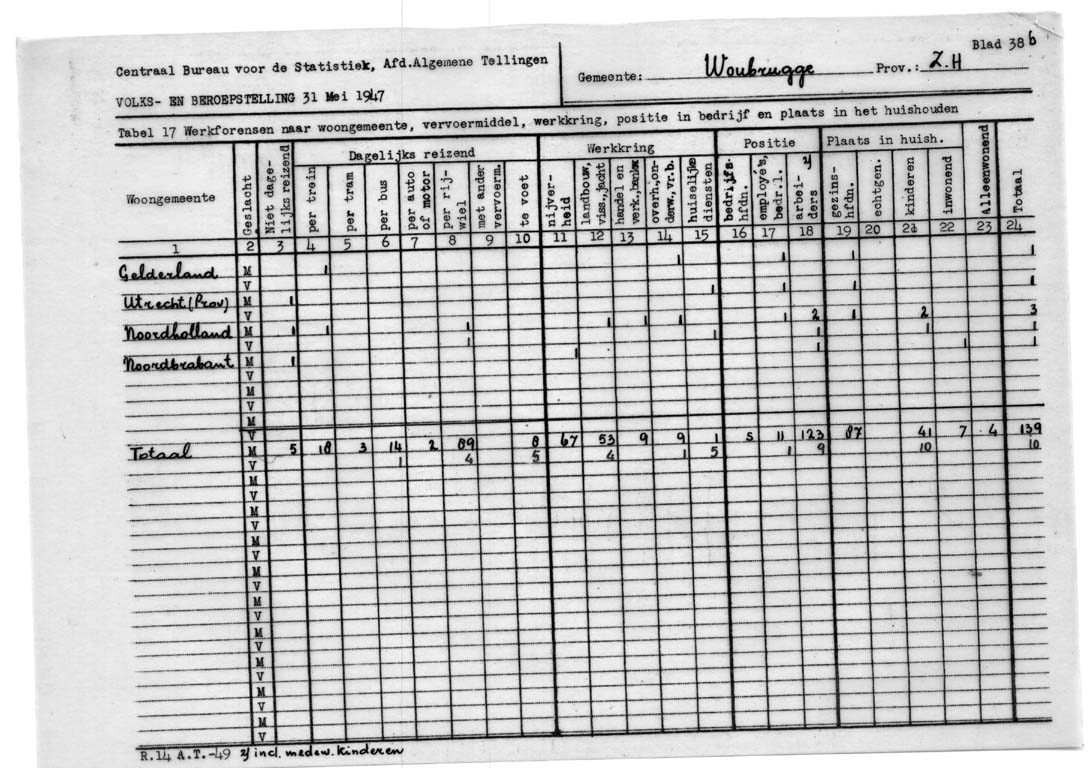 Blad 38 b
Centraal Bureau voor de Statistiek, Afd.Algemene Tellingen
Gemeente: Woubrugge Prov.: Z.H
VOLKS- EN BEROEPSTELLING 31 Mei 1947
Tabel 17 Werkforensen naar woongemeente, vervoermiddel, werkkring, positie in bedrijf en plaats in het huishouden
Woongemeente Geslacht Niet dage- lijks reizend Dagelijks reizend Werkkring Positie Plaats in huish. Alleenwonend Totaal
per trein per tram per bus per auto of motor Per rij- wiel met ander vervoerm. te voet nijver- heid landbouw, viss.,jacht handel en verk.,bankw overh.,on- derw.,vr.b. huiselijke diensten bedrijfs- hfdn. employé's, bedr.l. arbei- ders 2/ gezins- hfdn. echtgen. kinderen inwonend
1 2 3 4 5 6 7 8 9 10 11 12 13 14 15 16 17 18 19 20 21 22 23 24
Gelderland M 1 1 1 1 1
V 1 1 1 1
Utrecht (Prov) M 1
V 1 2 1 2 3
Noordholland M 1 1 1 1 1 1 1 1 1 1
V 1 1 1 1
Noordbrabant M 1 1
V
M
V
M
V
Totaal M 5 18 3 14 2 89 8 67 53 9 9 1 5 11 123 87 41 7 4 139
V 1 4 5 4 1 5 1 9 10 10
M
V
M
V
M
V
M
V
M
V
M
V
M
V
M
V
M
V
R.14 A.T.-49 2/ incl. medew. kinderen